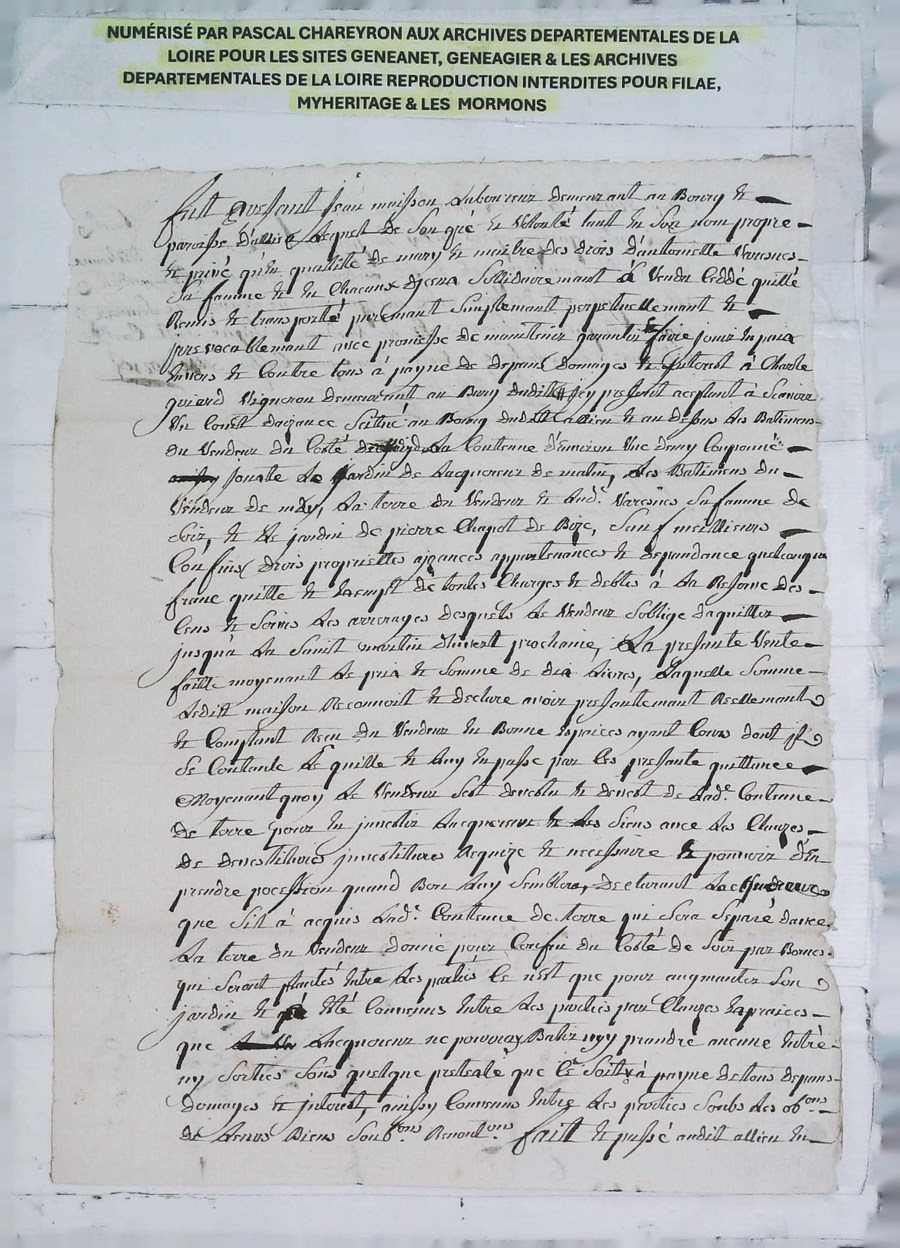 NUMÉRISÉ PAR PASCAL CHAREYRON AUX ARCHIVES DEPARTEMENTALES DE LA
LOIRE POUR LES SITES GENEANET, GENEAGIER & LES ARCHIVES
DEPARTEMENTALES DE LA LOIRE REPRODUCTION INTERDITES POUR FILAE,
MYHERITAGE & LES MORMONS
fust pressant Jean maisson Laboureur demeurant au Bourg &
paroisse d'allieu Lequel de Son gré & Vollonté tant en Son nom propre
& privé qu'en quallité de mary & maitre des drois d'anthoinette Varenes
Sa famme & en Chacuns d'jceux Sollidairemant à Vendu Ceddé quitté
Remis & transporté puremant Simplemant perpetuellemant &
jrrevocablemant avec promesse de maintenir garantir & faire jouir en paix
Envers & Contre tous à payne de depans domages & Jnterest à Charle
Vigneron demeurant au Bourg dudit jcy present aceptant à Scavoir
Un Situé au Bourg dudit allieu & au dessus des Batimens
du Vendeur du Costé de La Contenue d'Environ Une demy Couponnée
jouxte Le jardin de Lacquereur de matin, Les Batimens du
Vendeur de midy, La terre du Vendeur & Lad.e Varenes Sa famme de
Soir, & Le jardin de pierre Chapot de Bize, Sauf meillieurs
Confins drois proprietés aizances appartenances & depandance quelconque
franc quitte & Exempt de toutes Charges & debtes à La Reserve des
Cens & Servis Les arrerages desquels Le Vendeur Soblige daquitter
jusqu'à La Saint martin d'hivert prochaine, La presante Vente
faitte moyenant Le prix & Somme de dix Livres, Laquelle Somme
Ledit maisson Reconnoit & declare avoir presantemant Reellemant
& Comptant Receu du Vendeur En Bonne Espaices ayant Cours dont jl
Se Contante Le quitte & Luy En passe par Ces presante quittance
Moyenant quoy Le Vendeur Sest devestu & devest de Lad.e Contenue
de terre pour En jnvestir Lacquereur & Les Siens avec Les Clauzes
de devestitures jnvestitures Requize & necessaire & pouvoir d'En
prendre pocession quand Bon Luy Semblera, declarant
que Sil à acquis Lad.e Contenue de terre qui Sera Separé davec
La terre du Vendeur donné pour Confin du Costé de Soir par Bornes
qui Seront plantés Entre Les parties Ce n'est que pour augmanter Son
jardin & Eté Convenus Entre Les parties par Clauzes Expraices
que Lacquereur ne pourray Batir ny prandre aucune Entré
ny Sorties Sous quelque pretexte que Ce Soit à payne de tous depans
domages & jnterest, ainssy Convenus Entre Les parties Soubs Les ob.ons
de Leurs Biens Soub.ons Renont.ons fait & passé audit allieu En